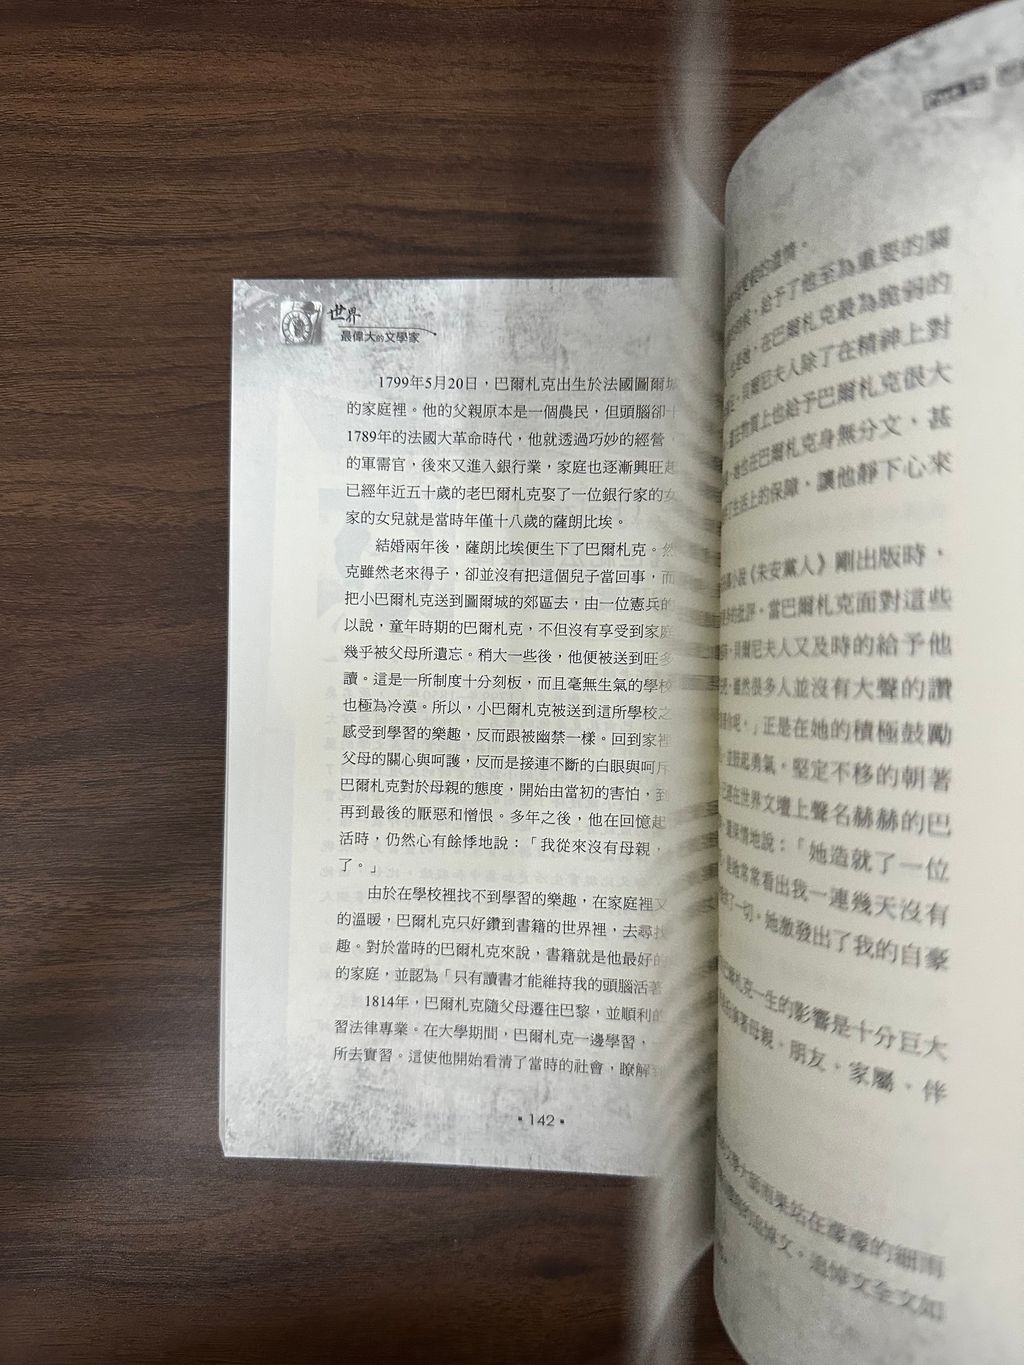 世界
最偉大的文學家
1799年5月20日，巴爾札克出生於法國圖爾城
的家庭裡。他的父親原本是一個農民，但頭腦卻十
1789年的法國大革命時代，他就透過巧妙的經營，
的軍需官，後來又進入銀行業，家庭也逐漸興旺起
已經年近五十歲的老巴爾札克娶了一位銀行家的女
家的女兒就是當時年僅十八歲的薩朗比埃。
結婚兩年後，薩朗比埃便生下了巴爾札克。然
克雖然老來得子，卻並沒有把這個兒子當回事，而
把小巴爾札克送到圖爾城的郊區去，由一位憲兵的
以說，童年時期的巴爾札克，不但沒有享受到家庭
幾乎被父母所遺忘。稍大一些後，他便被送到旺多
讀。這是一所制度十分刻板，而且毫無生氣的學校
也極為冷漠。所以，小巴爾札克被送到這所學校之
感受到學習的樂趣，反而跟被幽禁一樣。回到家裡
父母的關心與呵護，反而是接連不斷的白眼與呵斥
巴爾札克對於母親的態度，開始由當初的害怕，到
再到最後的厭惡和憎恨。多年之後，他在回憶起
活時，仍然心有餘悸地說：「我從來沒有母親，
了。」
由於在學校裡找不到學習的樂趣，在家庭裡又
的溫暖，巴爾札克只好鑽到書籍的世界裡，去尋找
趣。對於當時的巴爾札克來說，書籍就是他最好的
的家庭，並認為「只有讀書才能維持我的頭腦活著
1814年，巴爾札克隨父母遷往巴黎，並順利的
習法律專業。在大學期間，巴爾札克一邊學習，
所去實習。這使他開始看清了當時的社會，瞭解
142
的遺情。
給予了他至為重要的關
在巴爾札克最為脆弱的
貝爾尼夫人除了在精神上對
物質上也給予巴爾札克很大
她也在巴爾札克身無分文，甚
了生活上的保障，讓他靜下心來
小說《朱安黨人》剛出版時，
的批評。當巴爾札克面對這些
貝爾尼夫人又及時的給予他
雖然很多人並沒有大聲的讚
你呢。」正是在她的積極鼓勵
並鼓起勇氣，堅定不移的朝著
在世界文壇上聲名赫赫的巴
深情地說：「她造就了一位
她常常看出我一連幾天沒有
了一切。她激發出了我的自豪
札克一生的影響是十分巨大
演著母親、朋友、家屬、伴
文學大師雨果站在濛濛的細雨
的追悼文。追悼文全文如